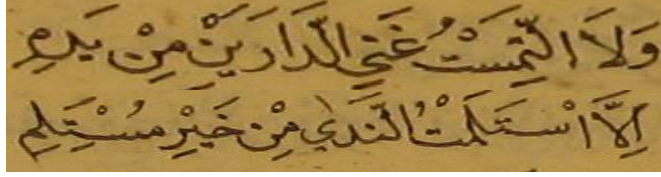 وَلَا الْتَمَسْتُ غَنِيَ الدَّارَيْنِ مِنْ يَدِهِ
اِلَّا اسْتَلَمْتُ النَّدَي مِنْ خَيْرِ مُسْتَلِمِ